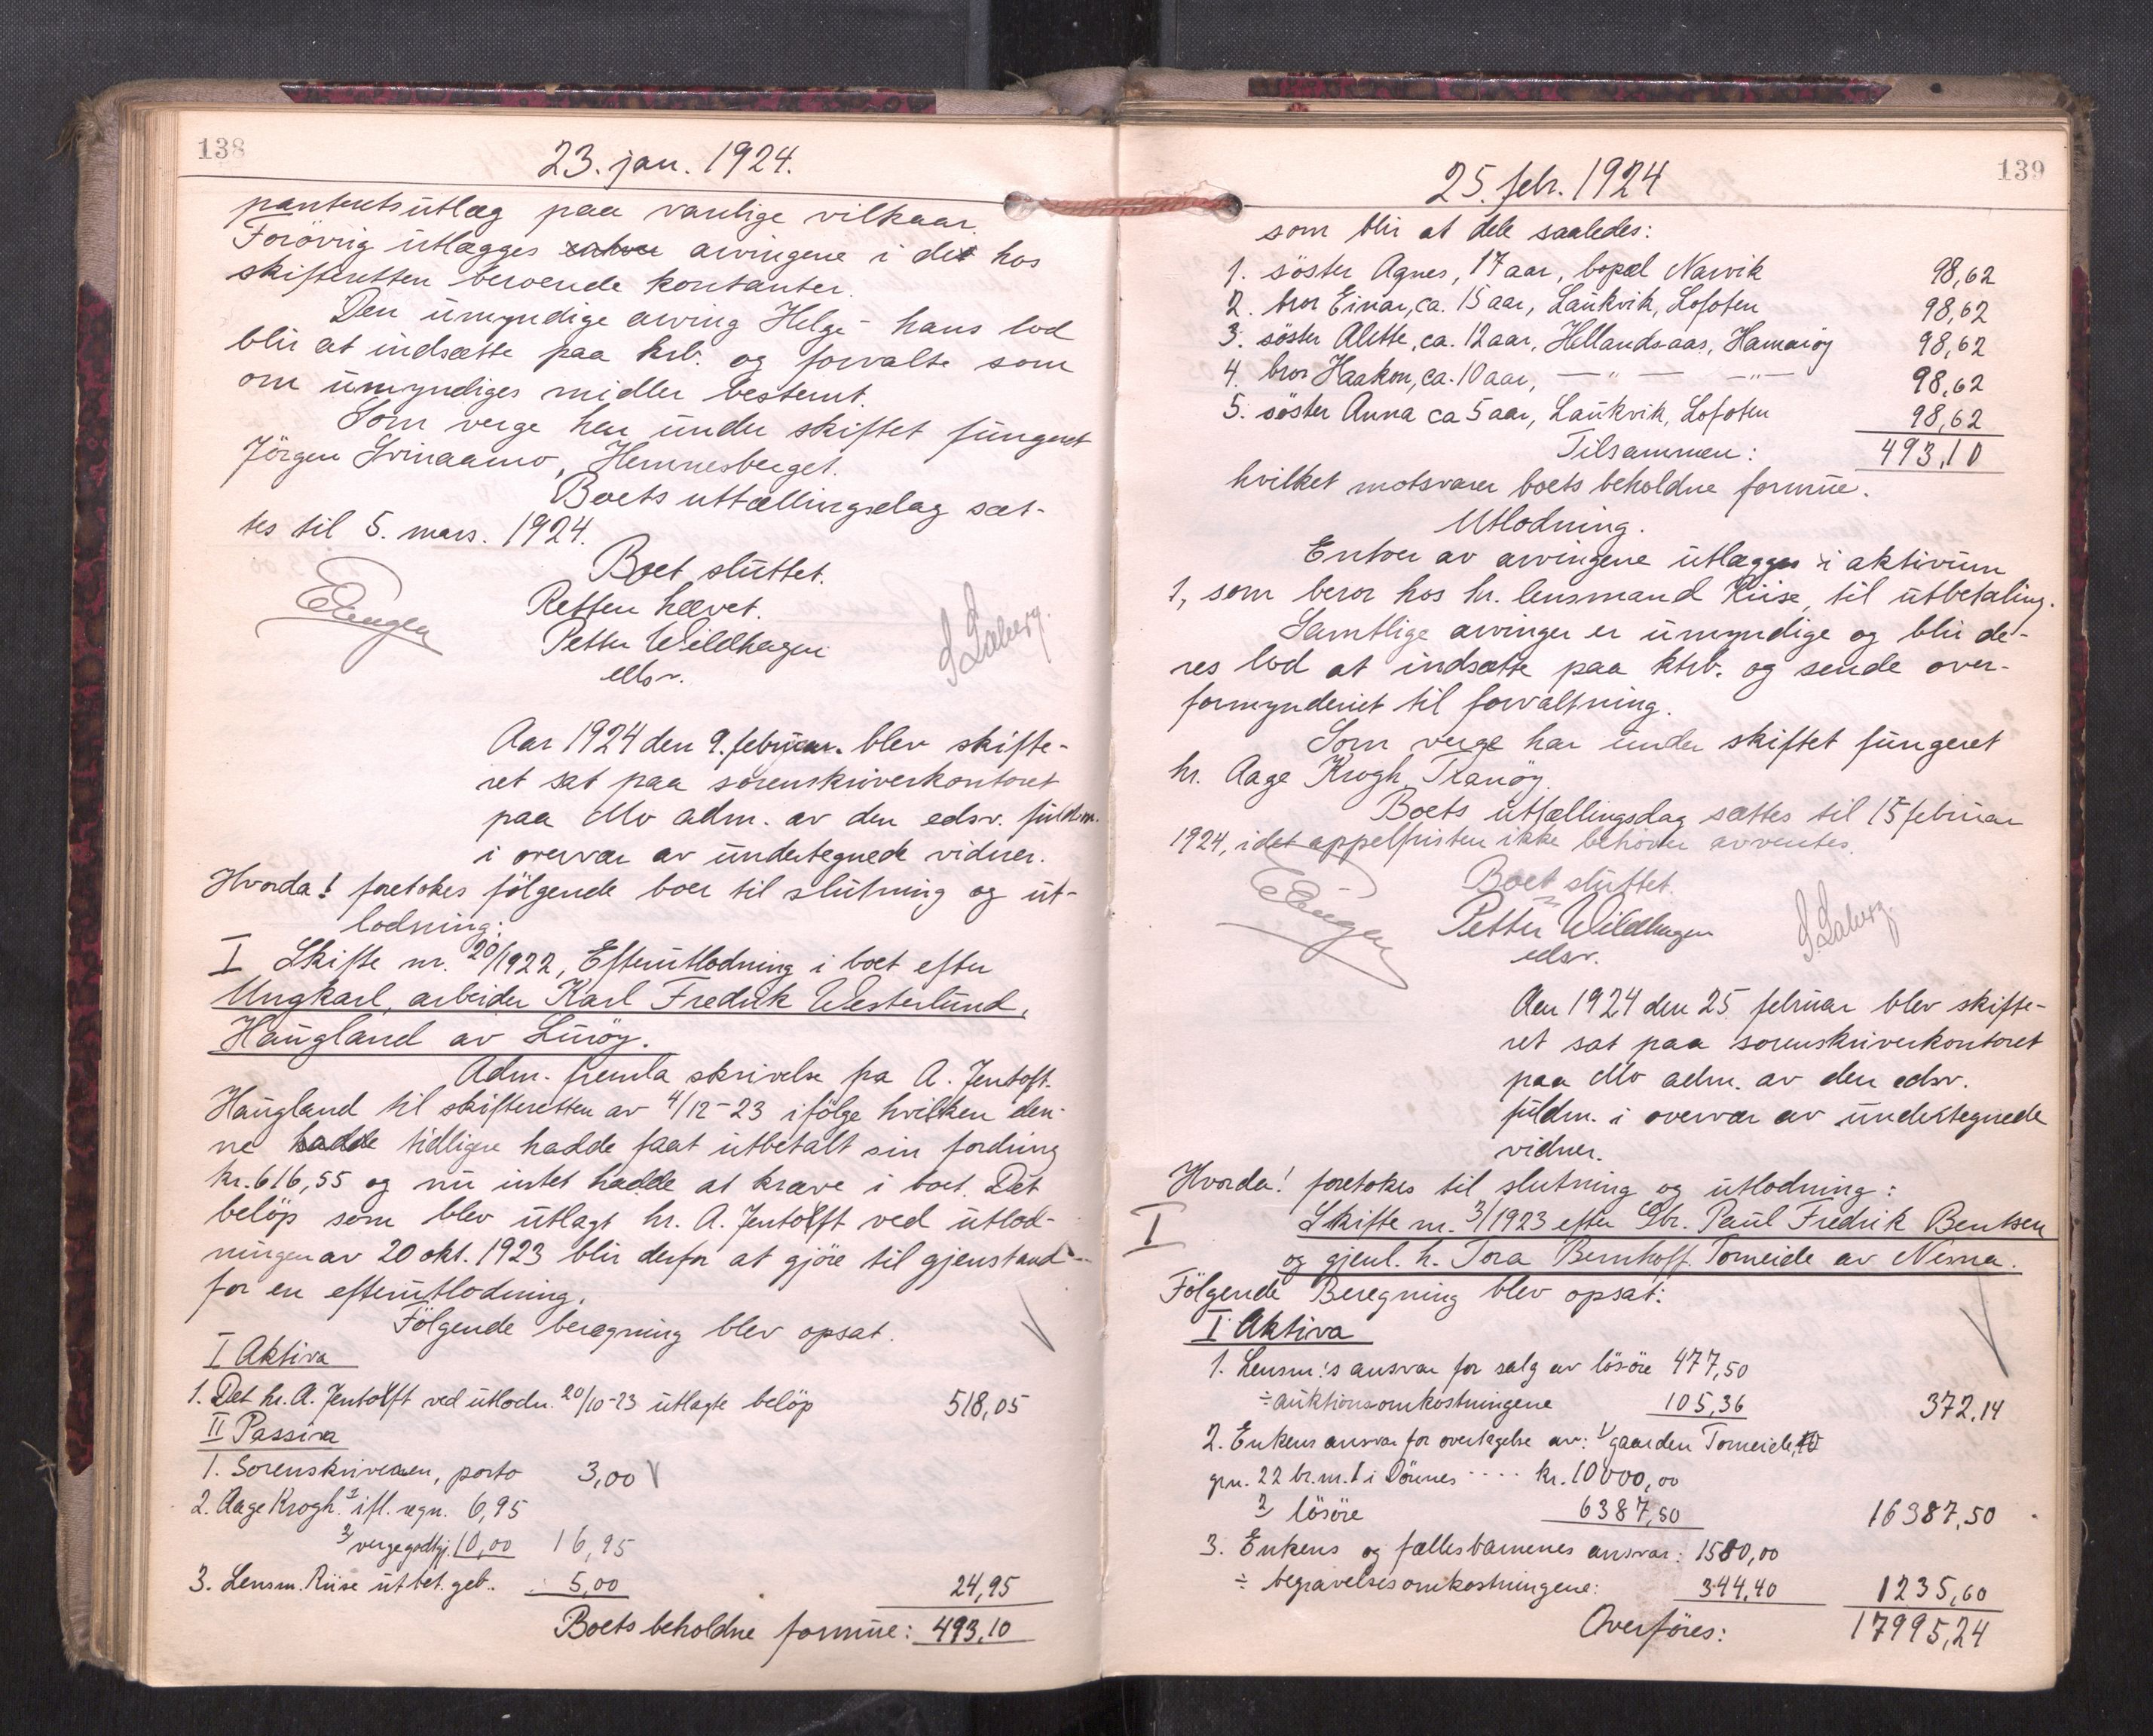 138
23. jan. 1924.
panteutsutlæg paa vanlige vilkaar.
Forövrig utlægges enhver arvingene i det hos
skifteretten beroende kontanter.
Den umyndige arving Helge - hans lod
blir at indsætte paa krb. og forvalte som
om umyndiges midler bestemt.
Som verge har under skiftet fungeret
Jörgen Hemnesberget.
Boets uttællingsdag sæt-
tes til 5. mars. 1924.
Boet sluttet.
Retten hævet.
Petter Wildhagen
edsv.
EEngen
S. Laberg.
Aar 1924 den 9. februar. blev skifte-
ret sat paa sorenskriverkontoret
paa Mo adm. av den edsv. fuldm.
i overvær av undertegnede vidner.
Hvorda! foretokes følgende boer til slutning og ut-
lodning:
I Skifte nr. 20/1922, Efterutlodning i boet efter
Ungkarl, arbeider Karl Fredrik Westerlund,
Haugland av Luröy.
Adm. fremla skrivelse fra A. Jentoft.
Haugland til skifteretten av 4/12-23 ifölge hvilken den-
ne hadde tidligere hadde faat utbetalt sin fordring
kr. 616,55 og nu intet hadde at kræve i boet. Det
belöp som blev utlagt hr. A. Jentofft ved utlod-
ningen av 20 okt. 1923 blir derfor at gjöre til gjenstand
for en efterutlodning.
Fölgende beregning blev opsat.
I Aktiva
1. Det hr. A. Jentofft ved utlodn. 20/10-23 utlagte belöp 518,05
II Passiva
1. Sorenskriveren, porto 3,00
2. Aage Krogh. 1/ ifl. regn. 6,95
2/ vergegodtgj. 10,00 16,95
3. Lensm. Riise utbet. geb.. 5,00 24,95
Boets beholdne formue: 493,10
139
25. febr. 1924
som blir at dele saaledes:
1. söster Agnes, 17 aar, bopæl Narvik 98,62
2. bror Einar, ca. 15 aar, Laukvik, Lofoten 98,62
3. söster Alette, ca. 12 aar, Hellandsaas, Hamaröy 98,62
4. bror Haakon, ca. 10 aar, — " — — " — 98,62
5. söster Anna ca 5 aar, Laukvik, Lofoten 98,62
Tilsammen: 493,10
hvilket motsvarer boets beholdne formue.
Utlodning.
Enhver av arvingene utlægges i aktivum
1, som beror hos hr. lensmand Riise, til utbetaling.
Samtlige arvinger er umyndige og blir de-
res lod at indsætte paa ktrb. og sende over-
formynderiet til forvaltning.
Som verge har under skiftet fungeret
hr. Aage Krogh, Tranöy.
Boets uttællingsdag sættes til 15 februar
1924, idet appelfristen ikke behöver avventes.
Boet sluttet.
Petter Wildhagen
edsv.
EEngen
S. Laberg.
Aar 1924 den 25. februar blev skifte-
ret sat paa sorenskriverkontoret
paa Mo adm. av den edsv.
fuldm. i overvær av undertegnede
vidner.
Hvorda! foretokes til slutning og utlodning:
I Skifte nr. 3/1923 efter Gbr. Paul Fredrik Bentsen
og gjenl. h. Tora Bernhoff. Tomeide av Nesna.
Fölgende Beregning blev opsat:
I Aktiva
1. Lensm.'s ansvar for salg av lösöre 477,50
÷ auktionsomkostningene 105,36 372,14
2. Enkens ansvar for overtagelse av: 1/ gaarden Tomeide,
grn. 22 br.nr. 1 i Dönnes .... kr. 10000,00
2/ lösöre 6387,50 16387,50
3. Enkens og fællesbarnenes ansvar: 1580,00
÷ begravelsesomkostningene: 344,40 1235,60
Overföres: 17995,24